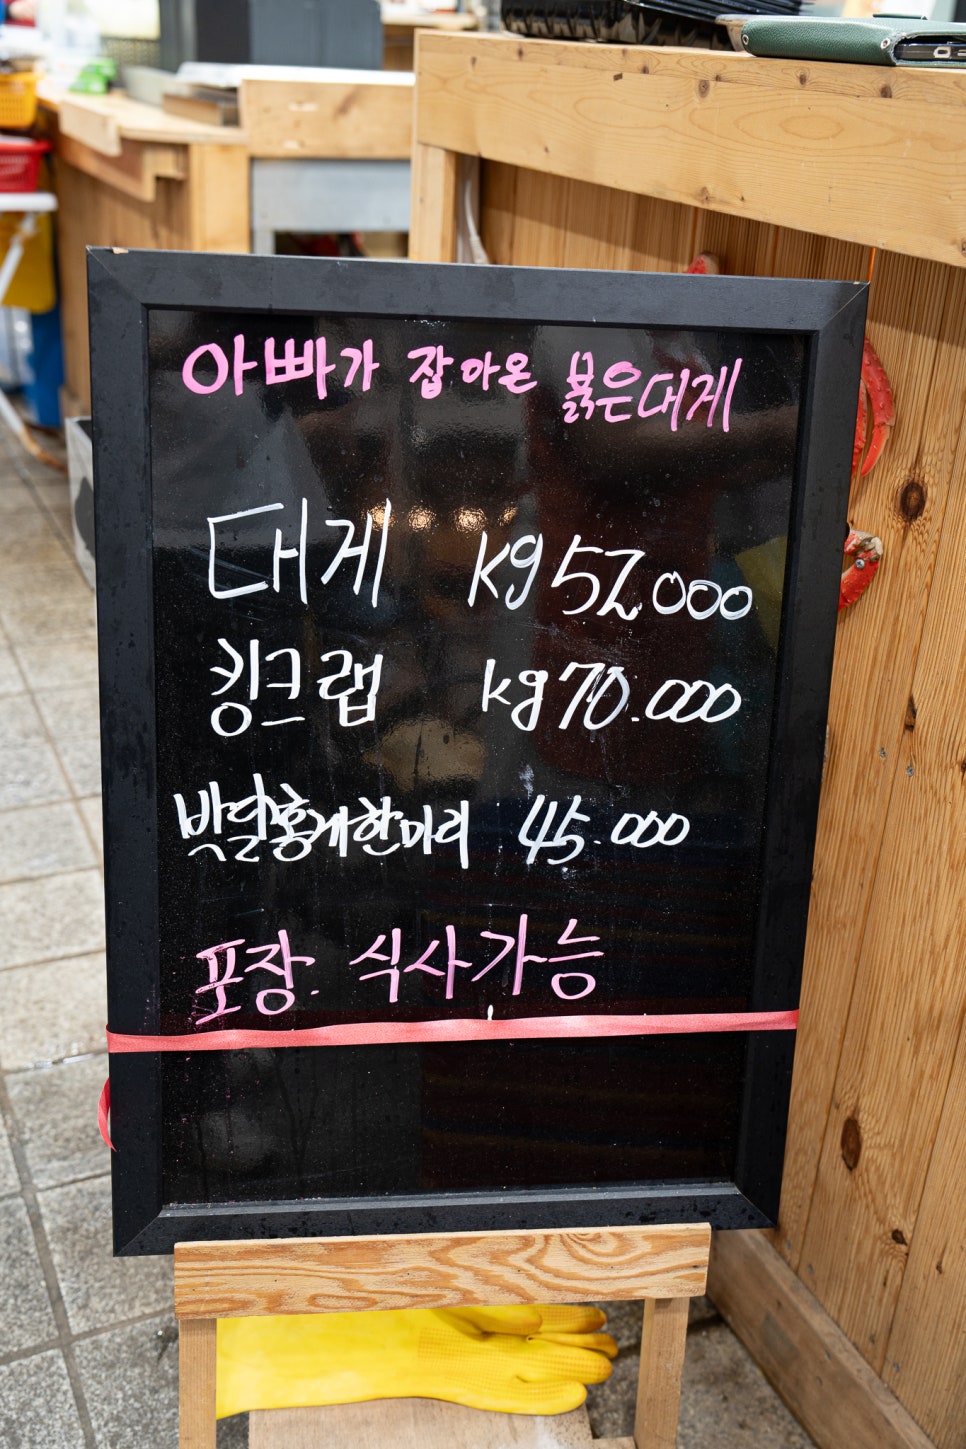 아빠가 잡아온 붉은대게
대게 kg 52,000
킹크랩 kg 70.000
박달홍게한마리 45.000
포장. 식사가능